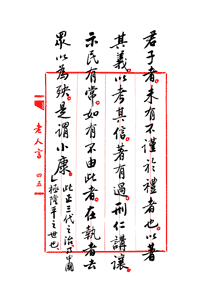 君子者未有不謹於禮者也以著
其義以考其信著有過刑仁講讓
示民有常如有不由此者在執者去
眾以為殃是謂小康
此正三代之治
極隆平之世也
老人言 四五